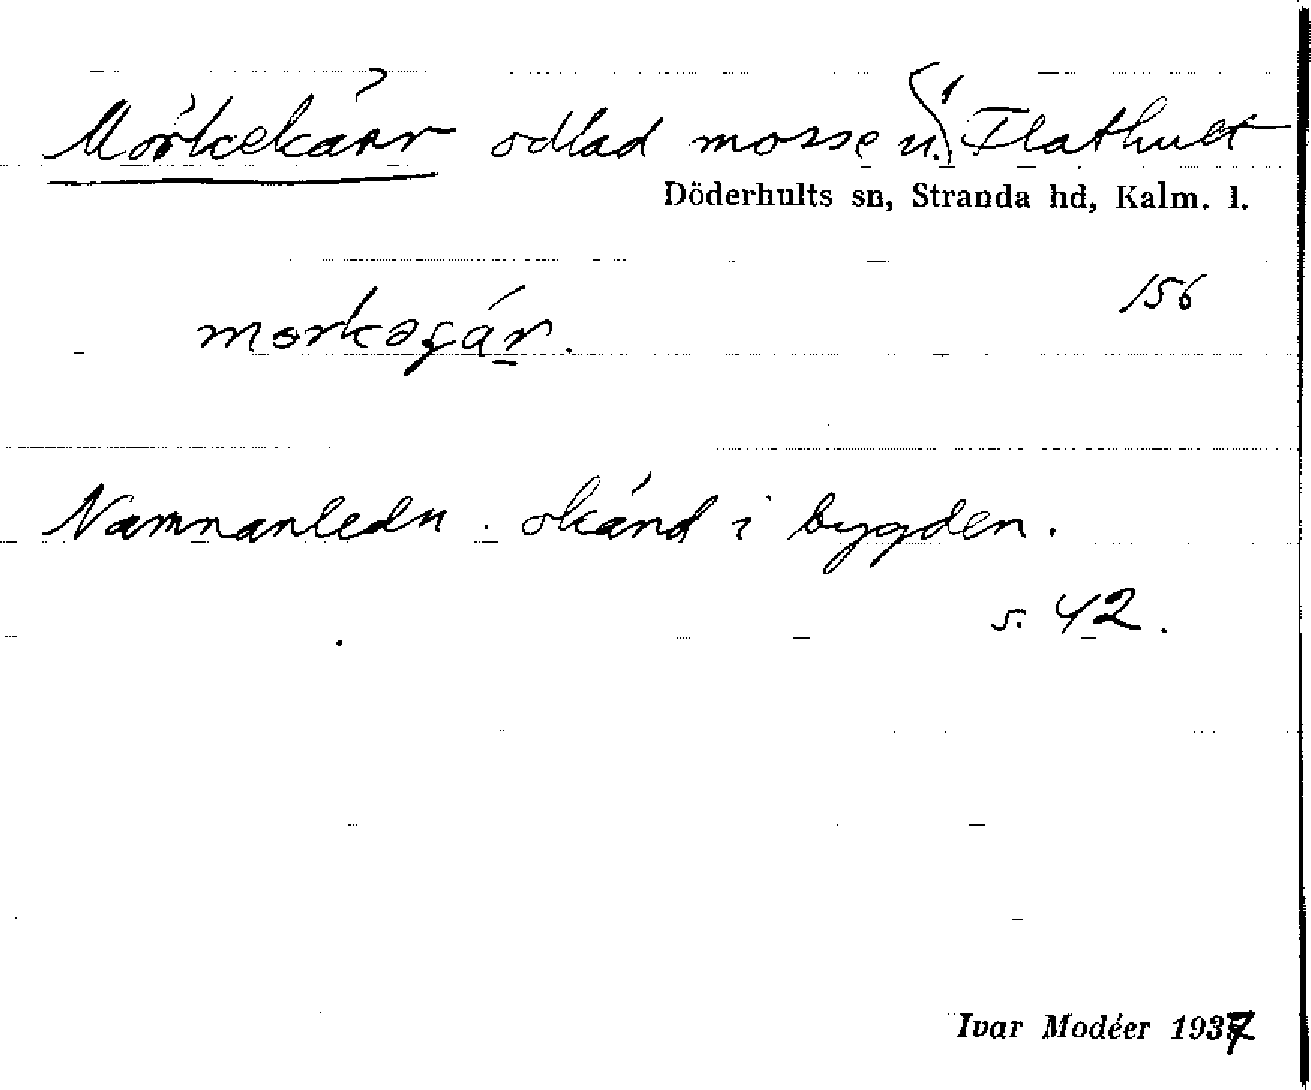 Mörkekärr odlad mosse u. Flathult
Döderhults sn, Stranda hd, Kalm. l.
156
mørkəçá̱r.
Namnanledn. okänd i bygden.
s. 42.
Ivar Modéer 1937